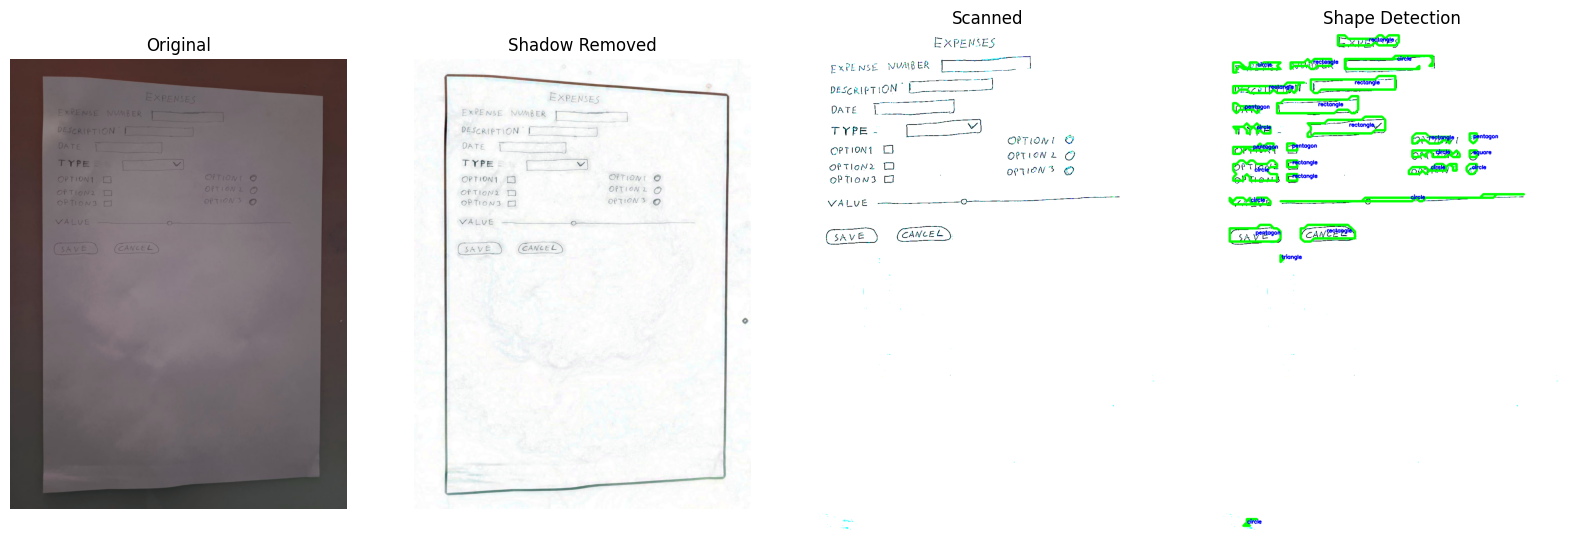 Original
EXPENSES
EXPENSE NUMBER
DESCRIPTION
DATE
TYPE -
OPTION1 OPTION1
OPTION2 OPTION2
OPTION3 OPTION3
VALUE
SAVE CANCEL
Shadow Removed
EXPENSES
EXPENSE NUMBER
DESCRIPTION
DATE
TYPE -
OPTION1 OPTION1
OPTION2 OPTION2
OPTION3 OPTION3
VALUE
SAVE CANCEL
Scanned
EXPENSES
EXPENSE NUMBER
DESCRIPTION
DATE
TYPE -
OPTION1 OPTION1
OPTION2 OPTION2
OPTION3 OPTION3
VALUE
SAVE CANCEL
Shape Detection
rectangle
circle rectangle circle
rectangle rectangle
pentagon rectangle
circle rectangle
rectangle pentagon
pentagon pentagon
circle square
rectangle
circle circle circle
rectangle
circle circle
SAVE pentagon CANCEL rectangle
triangle
circle